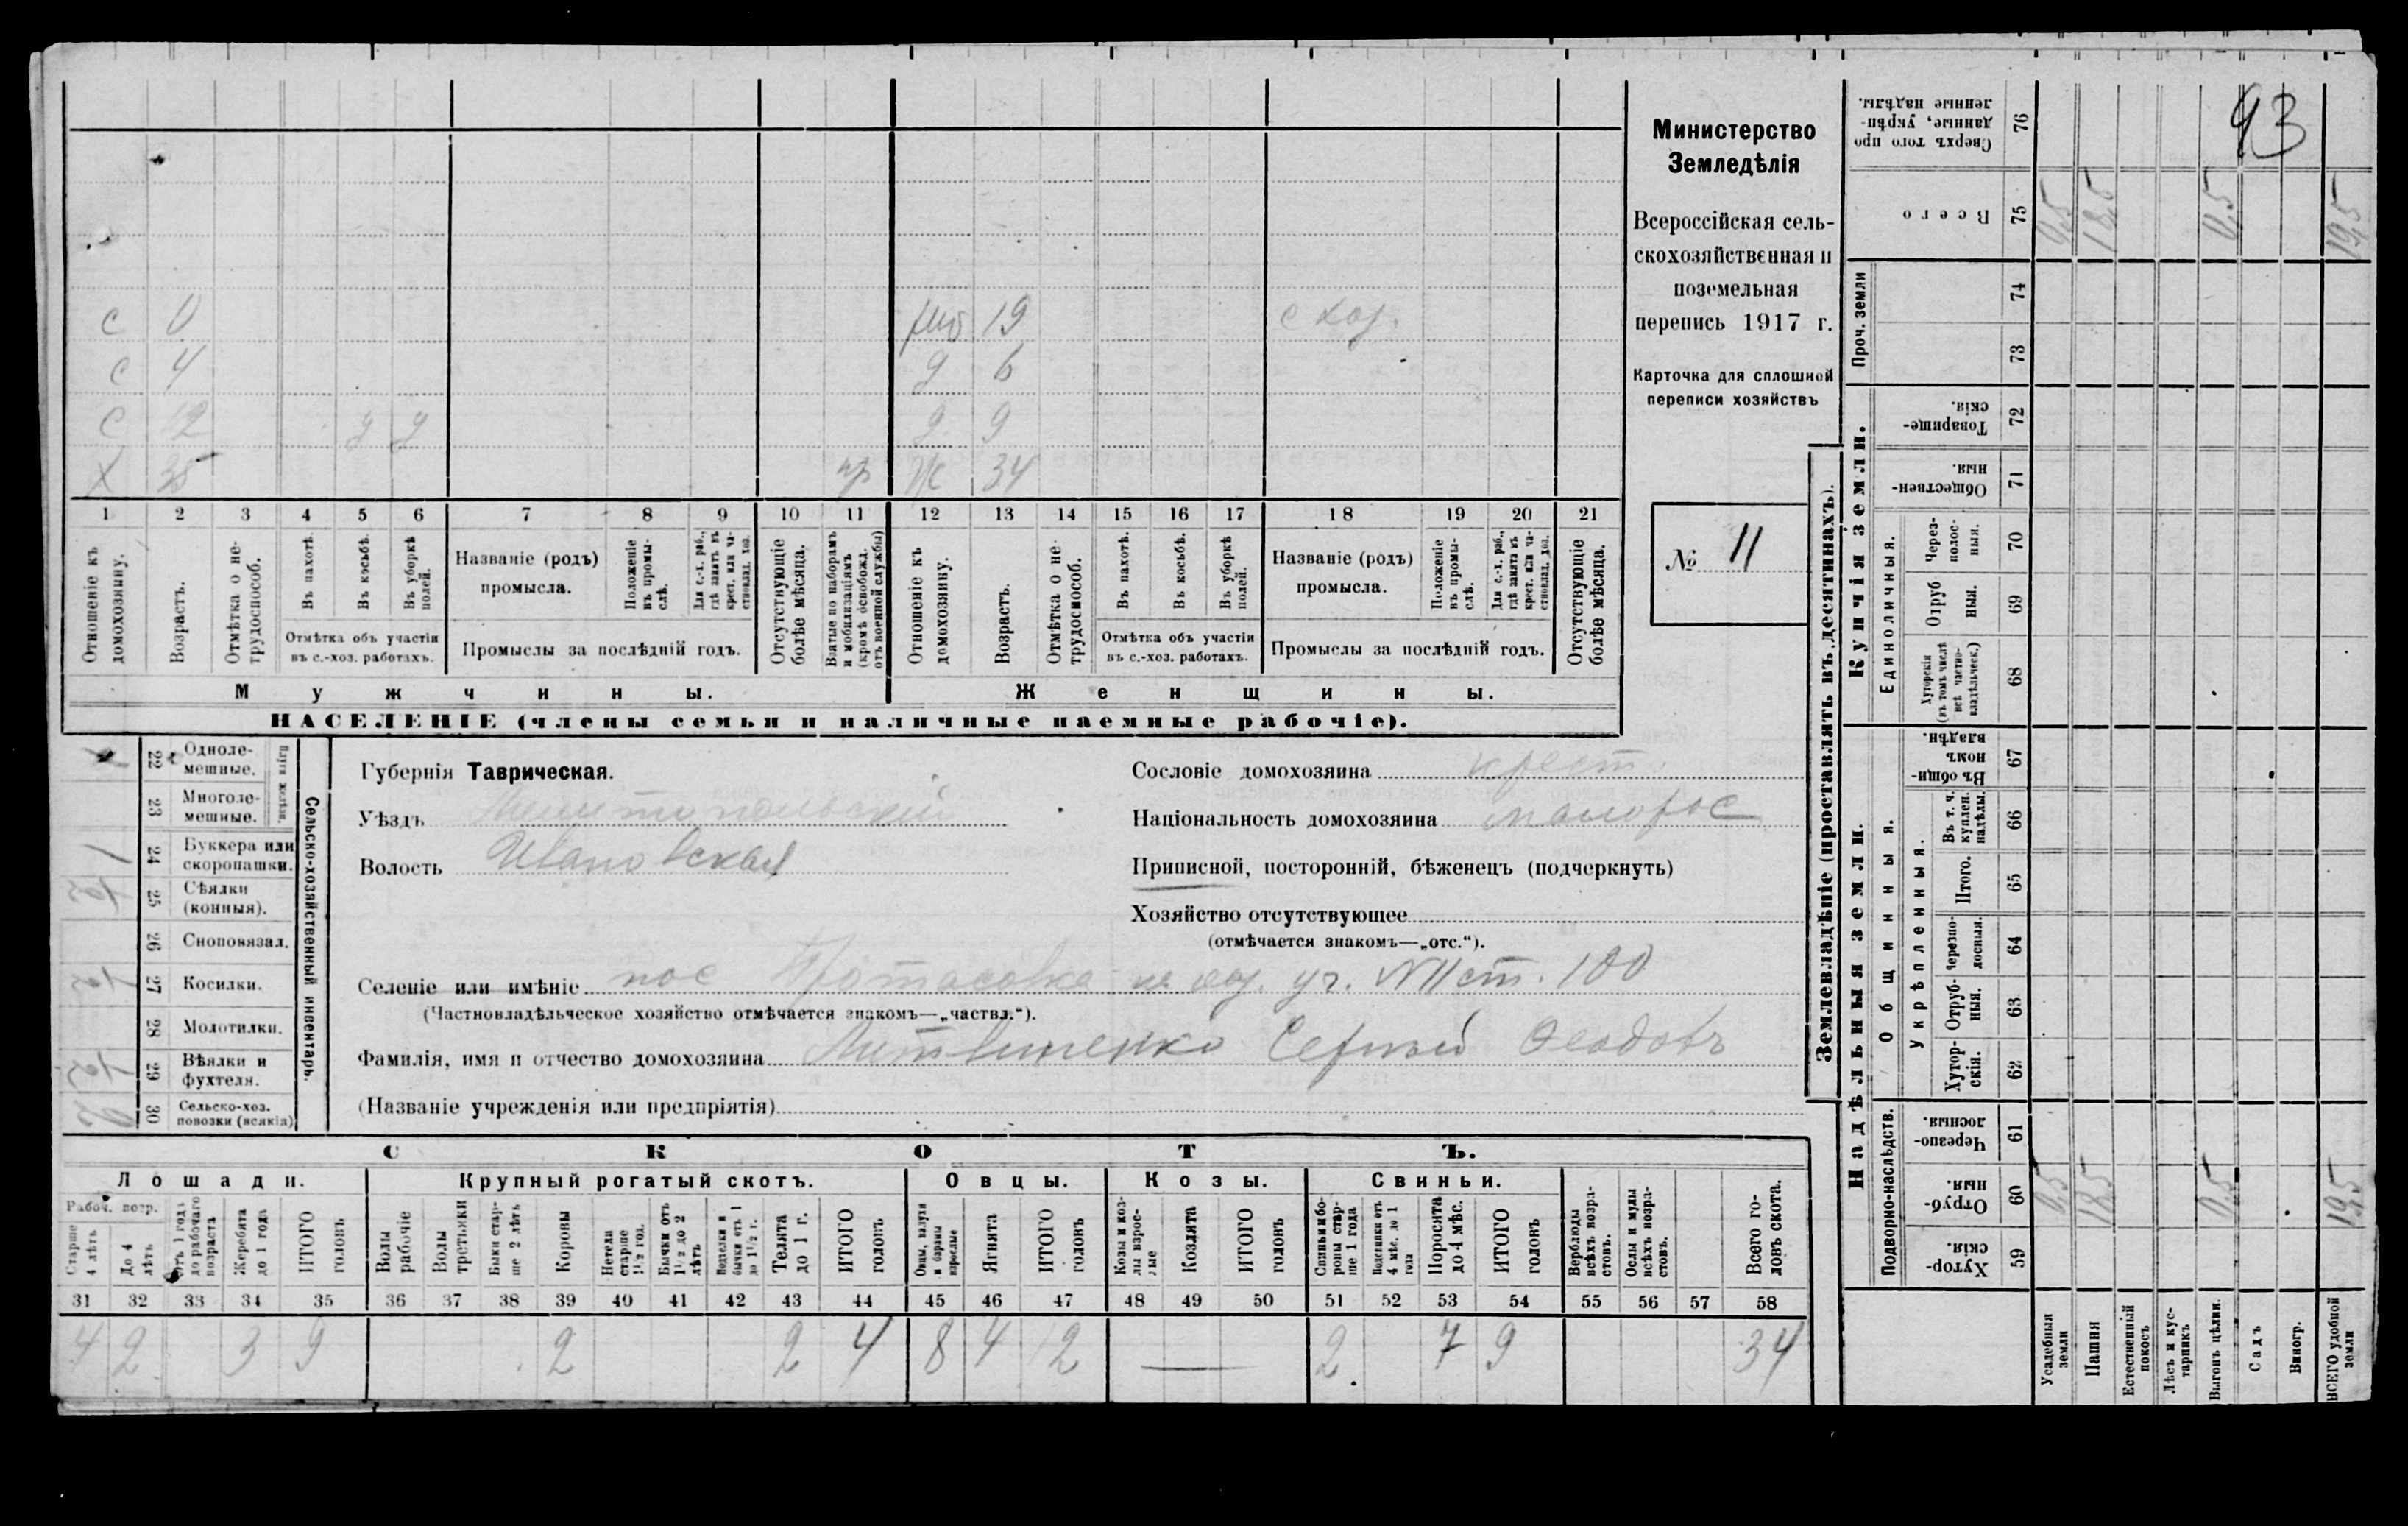 93
Министерство
Земледѣлія
Всероссійская сель-
скохозяйственная и
поземельная
перепись 1917 г.
Карточка для сплошной
переписи хозяйствъ
№ 11
С 0
С 4
С 12
Х 35 пр
19
д 6
д 9
Ж 34
1 2 3 4 5 6 7 8 9 10 11 12 13 14 15 16 17 18 19 20 21
Отношеніе къ домохозяину.
Возрастъ.
Отмѣтка о не-трудоспособ.
Въ пахотѣ.
Въ косьбѣ.
Въ уборкѣ полей.
Отмѣтка объ участіи
въ с.-хоз. работахъ.
Названіе (родъ)
промысла.
Положеніе въ промы-слѣ.
Для с.-х. раб., гдѣ занятъ въ крест. или ча-стновлад. хоз.
Промыслы за послѣдній годъ.
Отсутствующіе болѣе мѣсяца.
Взятые по наборамъ и мобилизаціямъ (кромѣ освобожд. отъ военной службы)
Отношеніе къ домохозяину.
Возрастъ.
Отмѣтка о не-трудоспособ.
Въ пахотѣ.
Въ косьбѣ.
Въ уборкѣ полей.
Отмѣтка объ участіи
въ с.-хоз. работахъ.
Названіе (родъ)
промысла.
Положеніе въ промы-слѣ.
Для с.-х. раб., гдѣ занята въ крест. или ча-стновлад. хоз.
Промыслы за послѣдній годъ.
Отсутствующіе болѣе мѣсяца.
Мужчины.
Женщины.
НАСЕЛЕНІЕ (члены семьи и наличные наемные рабочіе).
Сельско-хозяйственный инвентарь.
22 Одноле-мешные.
23 Многоле-мешные.
24 Буккера или скоропашки. 1
25 Сѣялки (конныя).
26 Сноповязал.
27 Косилки.
28 Молотилки.
29 Вѣялки и фухтеля.
30 Сельско-хоз. повозки (всякія)
Губернія Таврическая.
Уѣздъ Мелитопольский
Волость Ивановская
Сословіе домохозяина крест.
Національность домохозяина малорос
Приписной, посторонній, бѣженецъ (подчеркнуть)
Хозяйство отсутствующее
(отмѣчается знакомъ—„отс.“).
Селеніе или имѣніе пос Протасовка уч. N11 ст. 100
(Частновладѣльческое хозяйство отмѣчается знакомъ—„частвл.“).
Фамилія, имя и отчество домохозяина Литвиненко Сергѣй Феодовъ
(Названіе учрежденія или предпріятія)
СКОТЪ.
Лошади. Крупный рогатый скотъ. Овцы. Козы. Свиньи.
Рабоч. возр.
Старше 4 лѣтъ
До 4 лѣтъ
Отъ 1 года до рабочаго возраста
Жеребята до 1 года
ИТОГО головъ
Волы рабочіе
Волы третьяки
Быки стар-ше 2 лѣтъ
Коровы
Нетели старше 1½ год.
Бычки отъ 1½ до 2 лѣтъ
Подтелки и бычки отъ 1 до 1½ г.
Телята до 1 г.
ИТОГО головъ
Овцы, валухи и бараны взрослые
Ягнята
ИТОГО головъ
Козы и коз-лы взрос-лые
Козлята
ИТОГО головъ
Свиньи и бо-ровы стар-ше 1 года
Подсвинки отъ 4 мѣс. до 1 года
Поросята до 4 мѣс.
ИТОГО головъ
Верблюды всѣхъ возра-стовъ.
Ослы и мулы всѣхъ возра-стовъ.
Всего го-ловъ скота.
31 32 33 34 35 36 37 38 39 40 41 42 43 44 45 46 47 48 49 50 51 52 53 54 55 56 57 58
4 2 3 9 2 2 4 8 4 12 — 2 7 9 34
Землевладѣніе (проставлять въ десятинахъ).
Купчія земли.
Надѣльныя земли.
Проч. земли
Единоличныя.
Общинныя.
Укрѣпленныя.
Подворно-наслѣдств.
76 Сверхъ того про-данные, укрѣп-ленные надѣлы.
75 Всего 0,5 18,5 0,5 19,5
74
73
72 Товарище-скія.
71 Обществен-ныя.
70 Через-полос-ныя.
69 Отруб ныя.
68 Хуторскія (въ томъ числѣ всѣ частно-владѣльческ.)
67 Въ общин-номъ владѣн.
66 Въ т. ч. куплен. надѣлы.
65 Итого.
64 Черезпо-лосныя.
63 Отруб-ныя.
62 Хутор-скія.
61 Черезпо-лосныя.
60 Отруб-ныя. 0,5 18,5 0,5 19,5
59 Хутор-скія.
Усадебныя земли
Пашня
Естественный покосъ
Лѣсъ и кус-тарникъ
Выгонъ цѣлин.
Садъ
Виногр.
ВСЕГО удобной земли